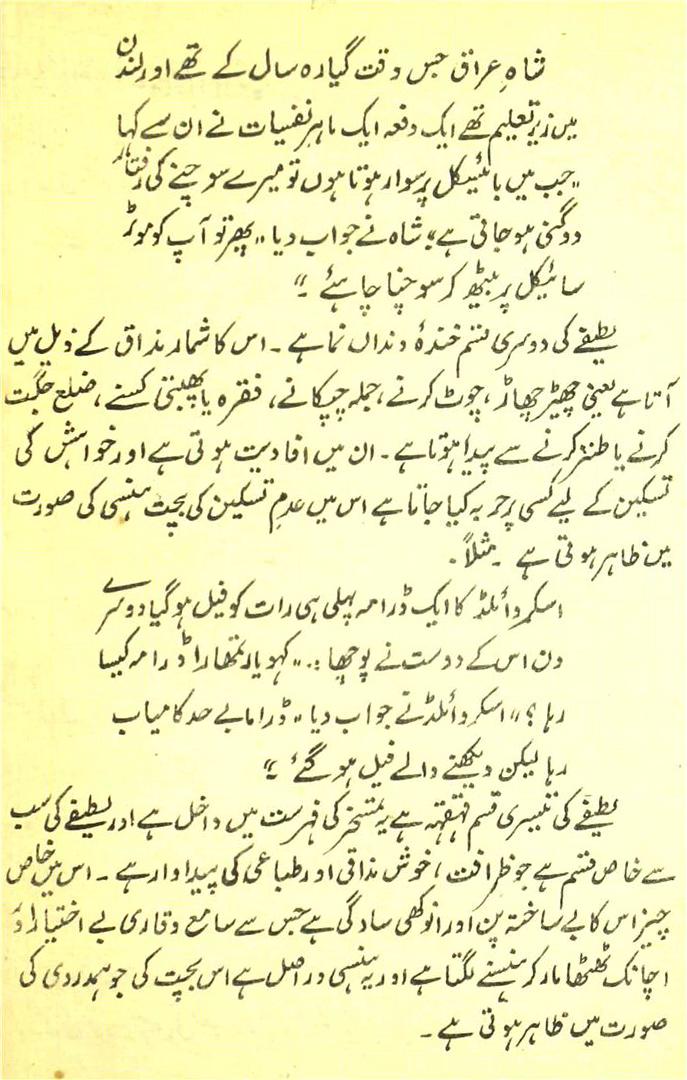 شاہِ عراق جس وقت گیارہ سال کے تھے اور لندن
میں زیرِ تعلیم تھے ایک دفعہ ایک ماہرِ نفسیات نے ان سے کہا
"جب میں بائیسکل پر سوار ہوتا ہوں تو میرے سوچنے کی رفتار
دوگنی ہو جاتی ہے" شاہ نے جواب دیا "پھر تو آپ کو موٹر
سائیکل پر بیٹھ کر سوچنا چاہئے۔"
لطیفے کی دوسری قسم خندۂ دنداں نما ہے۔ اس کا شمار مذاق کے ذیل میں
آتا ہے یعنی چھیڑ چھاڑ، چوٹ کرنے، جملہ چپکانے، فقرہ یا پھبتی کسنے، ضلع جگت
کرنے یا طنز کرنے سے پیدا ہوتا ہے۔ ان میں افادیت ہوتی ہے اور خواہش کی
تسکین کے لیے کسی پر حربہ کیا جاتا ہے اس میں عدمِ تسکین کی بچت ہنسی کی صورت
میں ظاہر ہوتی ہے۔ مثلاً۔
اسکر وائلڈ کا ایک ڈرامہ پہلی ہی رات کو فیل ہو گیا دوسرے
دن اس کے دوست نے پوچھا :۔ "کہو یار تمھارا ڈرامہ کیسا
رہا؟" اسکر وائلڈ نے جواب دیا "ڈراما بے حد کامیاب
رہا لیکن دیکھنے والے فیل ہو گئے۔"
لطیفے کی تیسری قسم قہقہہ ہے یہ تمسخر کی فہرست میں داخل ہے اور لطیفے کی سب
سے خاص قسم ہے جو ظرافت، خوش مذاقی اور طباعی کی پیداوار ہے۔ اس میں خاص
چیز اس کا بے ساختہ پن اور انوکھی سادگی ہے جس سے سامع و قاری بے اختیار اور
اچانک ٹھٹھا مار کر ہنسنے لگتا ہے اور یہ ہنسی دراصل ہے اس بچت کی جو ہمدردی کی
صورت میں ظاہر ہوتی ہے۔